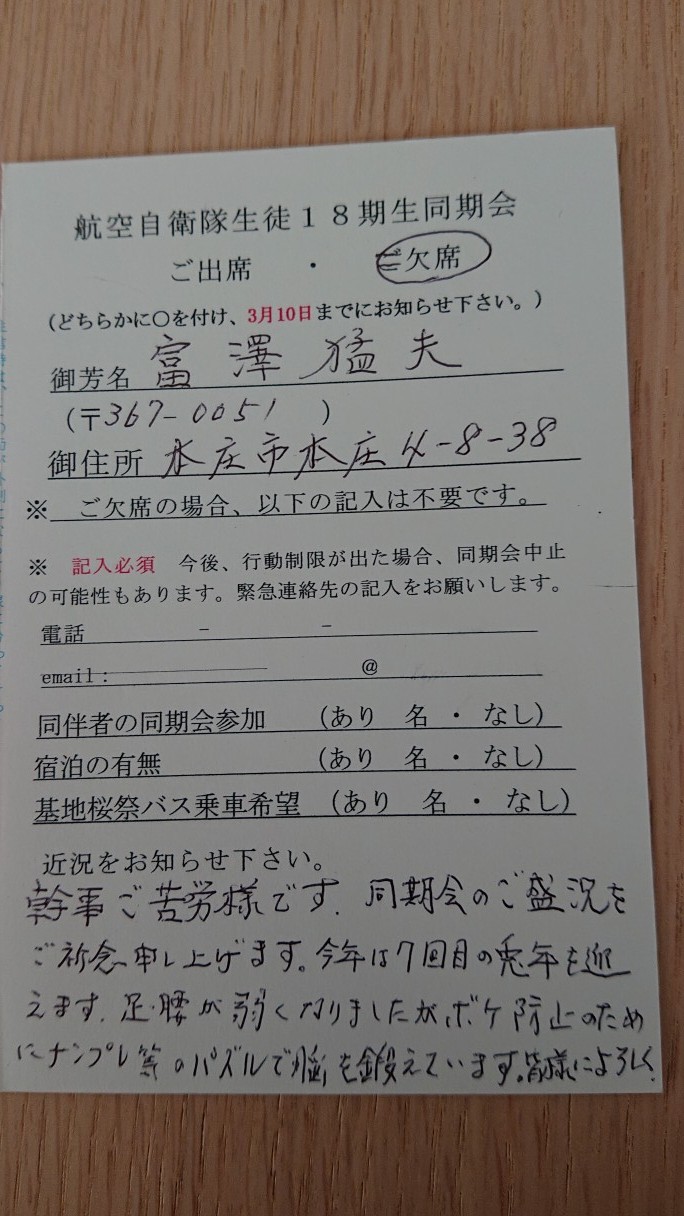 航空自衛隊生徒18期生同期会
ご出席 ・ ご欠席
(どちらかに〇を付け、3月10日までにお知らせ下さい。)
御芳名 富澤猛夫
(〒367-0051 )
御住所 本庄市本庄4-8-38
※ ご欠席の場合、以下の記入は不要です。
※ 記入必須 今後、行動制限が出た場合、同期会中止
の可能性もあります。緊急連絡先の記入をお願いします。
電話 - -
email: @
同伴者の同期会参加 (あり 名 ・ なし)
宿泊の有無 (あり 名 ・ なし)
基地桜祭バス乗車希望 (あり 名 ・ なし)
近況をお知らせ下さい。
幹事ご苦労様です. 同期会のご盛況を
ご祈念申し上げます。今年は7回目の兎年を迎
えます. 足・腰が弱くなりましたが、ボケ防止のため
にナンプレ等のパズルで脳を鍛えています。皆様によろしく.